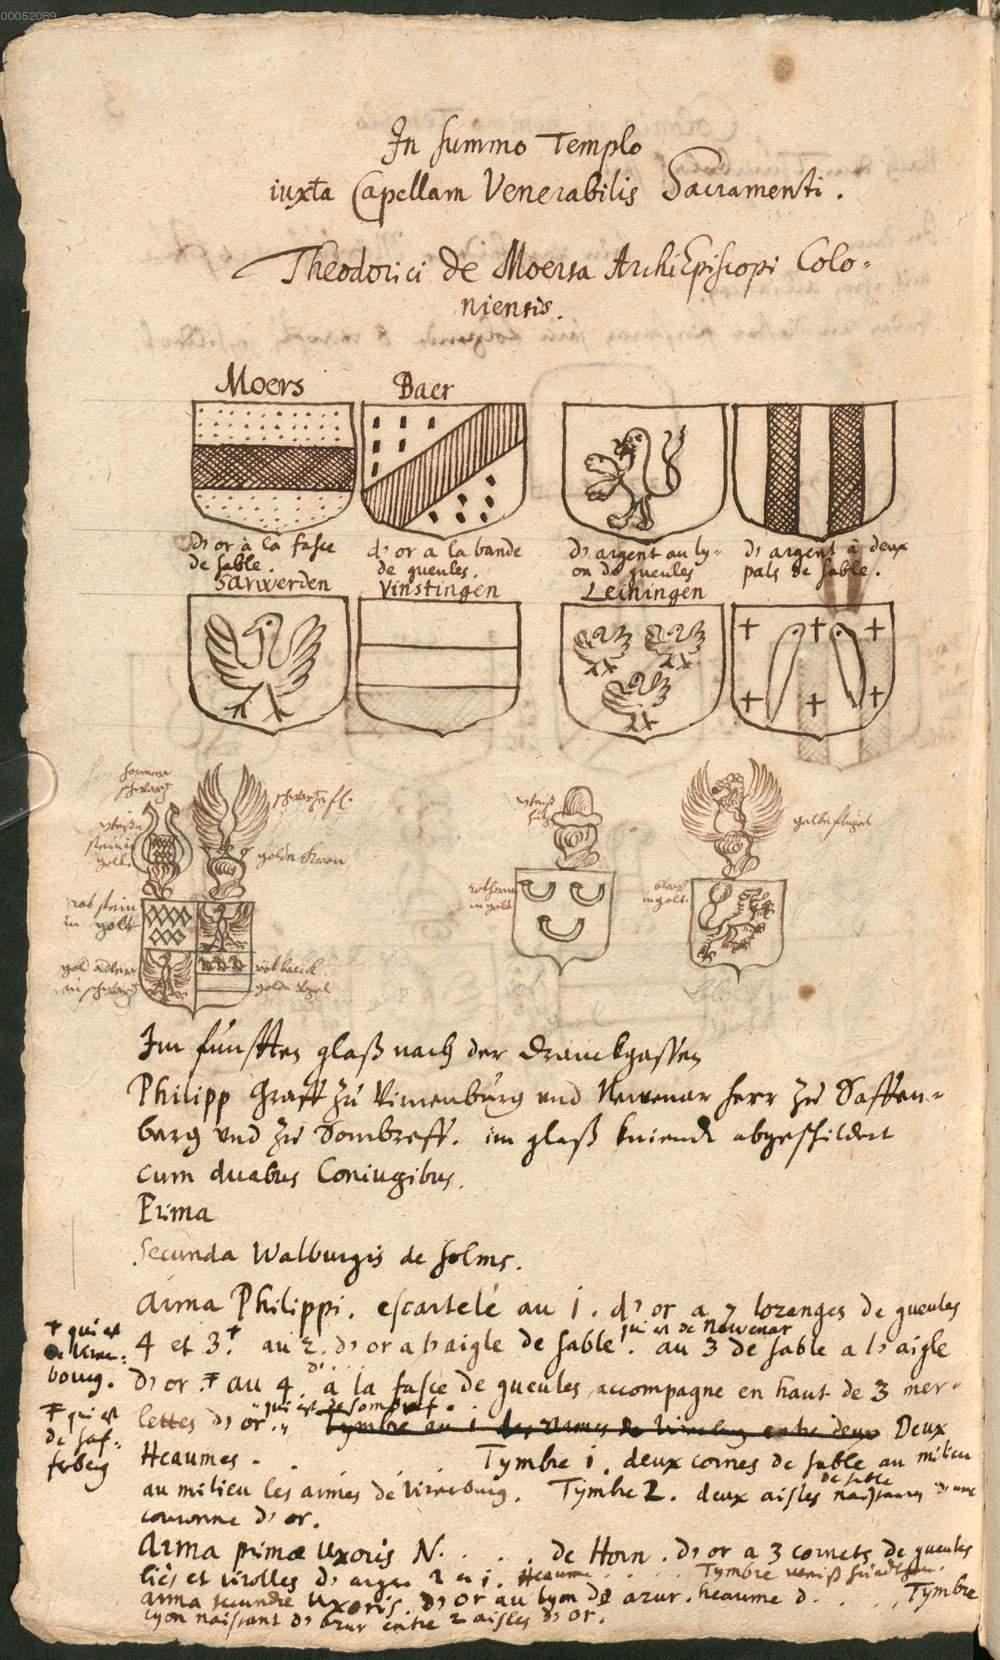 00052089
In summo Templo
iuxta Capellam Venerabilis Sacramenti.
Theodorici de Moersa ArchiEpiscopi Colo-
niensis.
Moers Baer
d'or à la fasce d'or a la bande d'argent au ly- d'argent à deux
de sable. de gueules. on de gueules pals de sable.
Sarwerden Vinstingen Leiningen
schwartz fl.
golde Kron
gelbe flügel
in golt
Im fünfften glaß nach der Dranckgassen
Philipp Graff zu Virnenburg und Newenar herr zu Saffen-
berg und zu Sombreff. im glaß kniendt abgeschildert
cum duabus Coniugibus.
Prima
Secunda Walburgis de Solms.
Arma Philippi. escartelé au 1. d'or a 7 lozanges de gueules
4 et 3. au 2. d'or a l'aigle de sable. qui est de Newenar au 3 de sable a l'aigle
qui est de Virne-
bourg.
d'or. au 4. d' à la fasce de gueules accompagne en haut de 3 mer-
qui est de Saf-
feberg
lettes d'or. qui est de Sombref. Tymbre au 1 des armes de Virneburg entre deux Deux
Heaumes. Tymbre 1. deux cornes de sable au milieu
au milieu les armes de Virneburg. Tymbre 2. deux aisles de sable naissants d'une
couronne d'or.
Arma primæ Uxoris N. . . . . de Horn. d'or a 3 cornets de gueules
liés et virolles d'argen 2 et 1. Heaume . . . . Tymbre
arma secundæ Uxoris. d'or au lyon de azur. heaume d. . . . , Tymbre
Lyon naissant d'azur entre 2 aisles d'or.